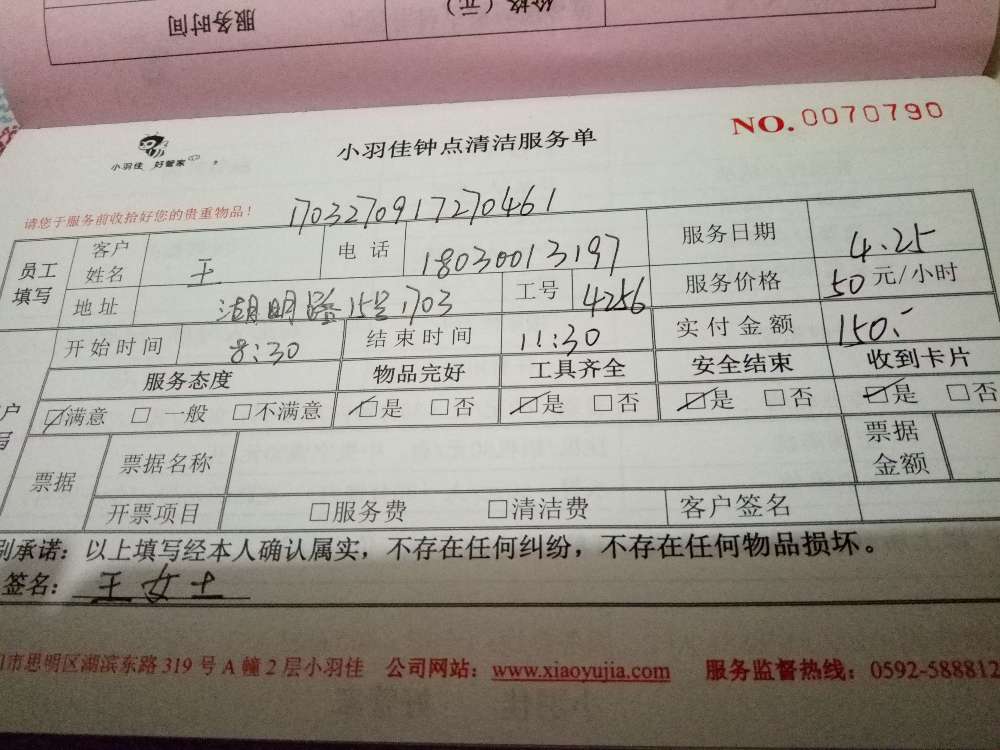 服务时间 价格（元）
NO.0070790
小羽佳 好管家
小羽佳钟点清洁服务单
请您于服务前收拾好您的贵重物品！
170327091727046​1
员工填写 客户姓名 王 电话 18030013197 服务日期 4.25
地址 湖明路15号1703 工号 4256 服务价格 50元/小时
开始时间 8:30 结束时间 11:30 实付金额 150.-
服务态度 物品完好 工具齐全 安全结束 收到卡片
☑满意 □一般 □不满意 ☑是 □否 ☑是 □否 ☑是 □否 ☑是 □否
票据 票据名称 票据金额
开票项目 □服务费 □清洁费 客户签名
承诺：以上填写经本人确认属实，不存在任何纠纷，不存在任何物品损坏。
签名：王女士
市思明区湖滨东路319号A幢2层小羽佳 公司网站：www.xiaoyujia.com 服务监督热线：0592-588812